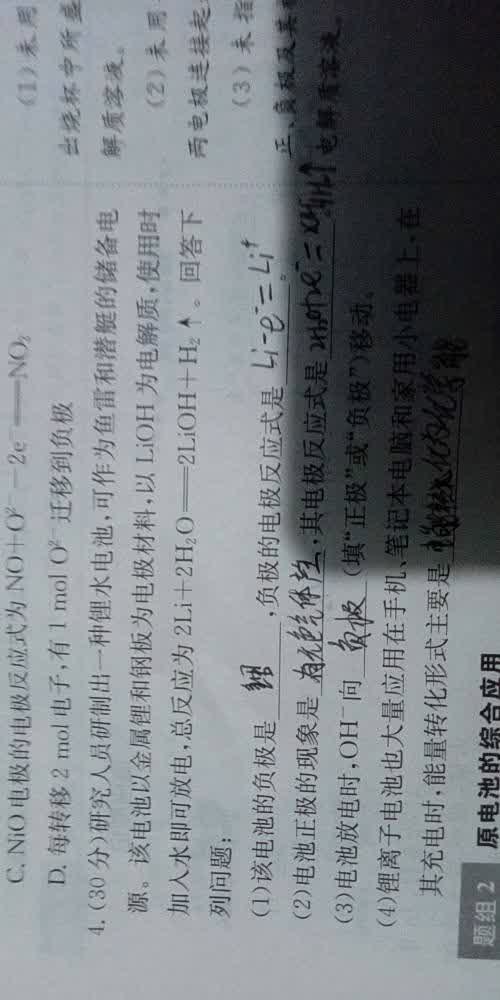 C. NiO 电极的电极反应式为 NO+O²⁻－2e⁻══NO₂
D. 每转移 2 mol 电子,有 1 mol O²⁻ 迁移到负极
4. (30 分)研究人员研制出一种锂水电池,可作为鱼雷和潜艇的储备电
源。该电池以金属锂和钢板为电极材料,以 LiOH 为电解质,使用时
加入水即可放电,总反应为 2Li+2H₂O══2LiOH+H₂↑。回答下
列问题:
(1)该电池的负极是 锂 ,负极的电极反应式是 Li-e⁻=Li⁺ 。
(2)电池正极的现象是 有无色气体产生 ,其电极反应式是
(3)电池放电时,OH⁻向 负极 (填“正极”或“负极”)移动。
(4)锂离子电池也大量应用在手机、笔记本电脑和家用小电器上,在
其充电时,能量转化形式主要是 化为化学能
题组 2 原电池的综合应用
(1)未用
出烧杯中所盛
解质溶液。
(2)未用
两电极连接起
(3)未指
正、负极及其
电解质溶液。